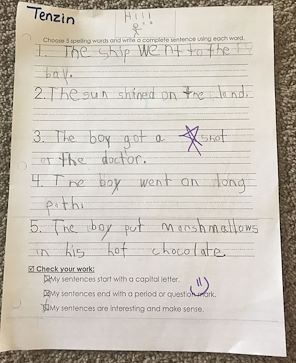 Tenzin
Hi!!!
Choose 5 spelling words and write a complete sentence using each word.
1. The ship went to the
bay.
2. The sun shined on the land.
3. The boy got a shot
at the doctor.
4. The boy went on long
path.
5. The boy put marshmallows
in his hot chocolate
Check your work:
My sentences start with a capital letter.
My sentences end with a period or question mark.
My sentences are interesting and make sense.